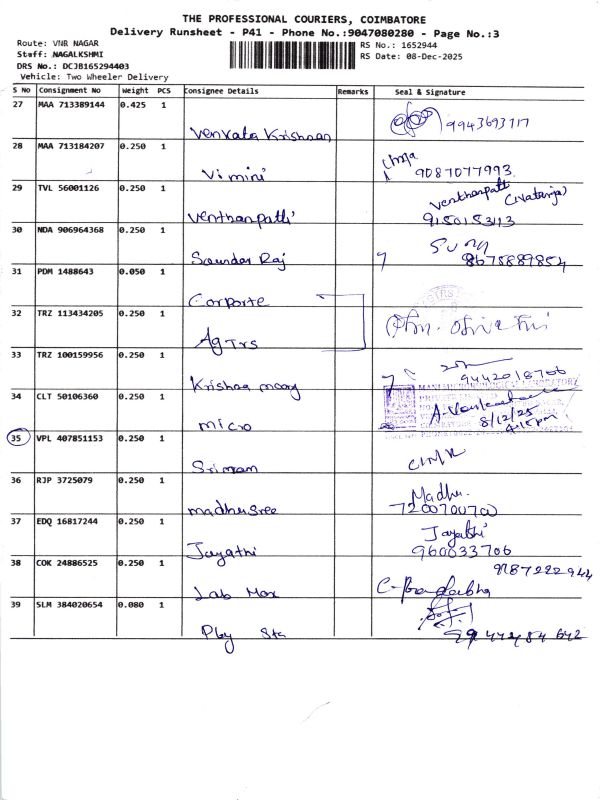 THE PROFESSIONAL COURIERS, COIMBATORE
Delivery Runsheet - P41 - Phone No.:9047080280 - Page No.:3
Route: VNR NAGAR
RS No.: 1652944
Staff: NAGALKSHMI
RS Date: 08-Dec-2025
DRS No.: DCJB165294403
Vehicle: Two Wheeler Delivery
S No Consignment No Weight PCS Consignee Details Remarks Seal & Signature
27 MAA 713389144 0.425 1
Venkata Krishnan 9943693717
28 MAA 713184207 0.250 1
Vimini 9087077993
29 TVL 56001126 0.250 1
Venthanpatti
9150153113
30 NDA 906964368 0.250 1
Soundar Raj 8675889854
31 PDM 1488643 0.050 1
Corporte
32 TRZ 113434205 0.250 1
Ag Trs
33 TRZ 100159956 0.250 1
Krishna moory 9442018706
34 CLT 50106360 0.250 1
micro
8/12/25
4:15pm
35 VPL 407851153 0.250 1
Sriram
36 RJP 3725079 0.250 1
Madhu
madhusree 7200700700
37 EDQ 16817244 0.250 1
Jayathi
Jayathi 960033706
38 COK 24886525 0.250 1
9787222944
Lab Max
39 SLM 384020654 0.080 1
Play Sta